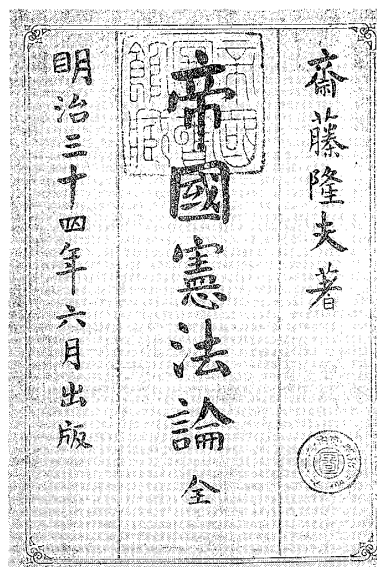 齋藤隆夫著
帝國憲法論 全
明治三十四年六月出版